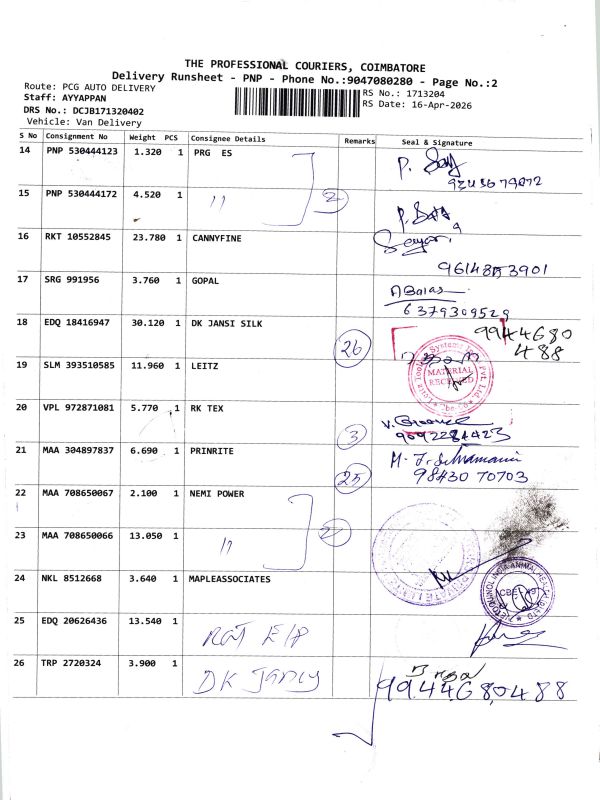 THE PROFESSIONAL COURIERS, COIMBATORE
Delivery Runsheet - PNP - Phone No.:9047080280 - Page No.:2
Route: PCG AUTO DELIVERY
RS No.: 1713204
Staff: AYYAPPAN
RS Date: 16-Apr-2026
DRS No.: DCJB171320402
Vehicle: Van Delivery
S No Consignment No Weight PCS Consignee Details Remarks Seal & Signature
14 PNP 530444123 1.320 1 PRG ES
15 PNP 530444172 4.520 1 11 2
16 RKT 10552845 23.780 1 CANNYFINE
9614853901
17 SRG 991956 3.760 1 GOPAL
6379309529
18 EDQ 18416947 30.120 1 DK JANSI SILK 26
9944680
488
19 SLM 393510585 11.960 1 LEITZ
MATERIAL
RECEIVED
20 VPL 972871081 5.770 1 RK TEX 3
9092284423
21 MAA 304897837 6.690 1 PRINRITE 25
98430 70703
22 MAA 708650067 2.100 1 NEMI POWER
23 MAA 708650066 13.050 1 11 2
24 NKL 8512668 3.640 1 MAPLEASSOCIATES
25 EDQ 20626436 13.540 1
26 TRP 2720324 3.900 1 DK Jancy
9944680488